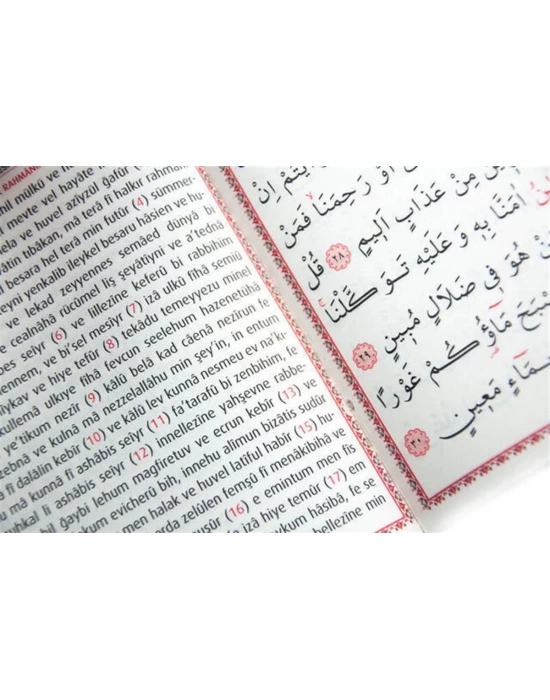 RAHMANİ
mil mülkü ve
meyte vel hayâte
ve huvel azîyzül gafûr (4)
tıbâkan, mâ terâ fî halkır rahman
besara hel terâ min futûr (4) sümmer-
yenkalib ileykel besaru hâsien ve hu-
ve lekad zeyyennes semâed dünyâ bi
ve cealnâhâ rücûmel liş şeyâtîyni ve a'tednâ
seiyr (6) ve lillezîne keferû bi rabbihim
ve bi'sel mesîyr (7) izâ ulkû fîhâ semiû
ve hiye tefûr (8) tekâdü temeyyezu minel
ulkıye fîhâ fevcun seelehum hazenetühâ
ye'tikum nezîr (9) kâlû belâ kad câenâ nezîrun fe
ve kulnâ mâ nezzelallâhu min şey'in, in entum
fî dalâlin kebîr (10) ve kâlû lev kunnâ nesmeu ev na'kı-
mâ kunnâ fî ashâbis seiyr (11) fa'tarafû bi zenbihim, fe
li ashâbis seiyr (12) innellezîne yahşevne rabbe-
bil ğaybi lehum mağfiretuv ve ecrun kebîr (13) ve
evicherû bih, innehu alîmun bizâtis sudûr
men halak ve huvel latîful habîr (15) hu-
arda zelûlen femşû fî menâkibihâ ve
(16) e emintum men fis
izâ hiye temûr (17) em
hâsıbâ, fe se
bellezîne min
اَوْ رَحِمَنَا فَمَنْ
مِنْ عَذَابٍ اَلِيمٍ ﴿٢٨﴾ قُلْ
اٰمَنَّا بِهِ وَ عَلَيْهِ تَوَكَّلْنَا
هُوَ فِي ضَلَالٍ مُبِينٍ ﴿٢٩﴾
مَاؤُكُمْ غَوْرًا
مَعِينٍ ﴿٣٠﴾